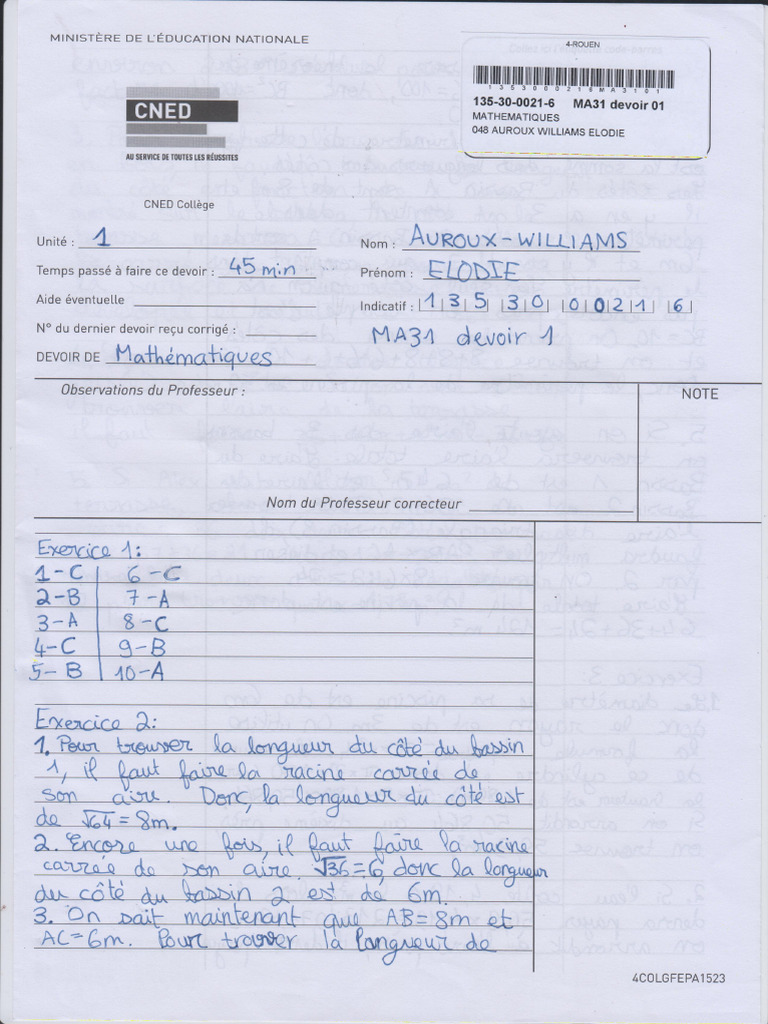 MINISTÈRE DE L'ÉDUCATION NATIONALE
4-ROUEN
1 3 5 3 0 0 0 2 1 6 M A 3 1 0 1
135-30-0021-6 MA31 devoir 01
MATHEMATIQUES
048 AUROUX WILLIAMS ELODIE
CNED
AU SERVICE DE TOUTES LES RÉUSSITES
CNED Collège
Unité : 1
Nom : AUROUX-WILLIAMS
Temps passé à faire ce devoir : 45 min
Prénom : ELODIE
Aide éventuelle
Indicatif : 1 3 5 3 0 0 0 2 1 6
N° du dernier devoir reçu corrigé :
MA31 devoir 1
DEVOIR DE Mathématiques
Observations du Professeur :
NOTE
Nom du Professeur correcteur
Exercice 1:
1-C 6-C
2-B 7-A
3-A 8-C
4-C 9-B
5-B 10-A
Exercice 2:
1. Pour trouver la longueur du côté du bassin
1, il faut faire la racine carrée de
son aire. Donc, la longueur du côté est
de √64=8m.
2. Encore une fois, il faut faire la racine
carrée de son aire. √36=6, donc la longueur
du côté du bassin 2 est de 6m.
3. On sait maintenant que AB=8m et
AC=6m. Pour trouver la longueur de
4COLGFEPA1523